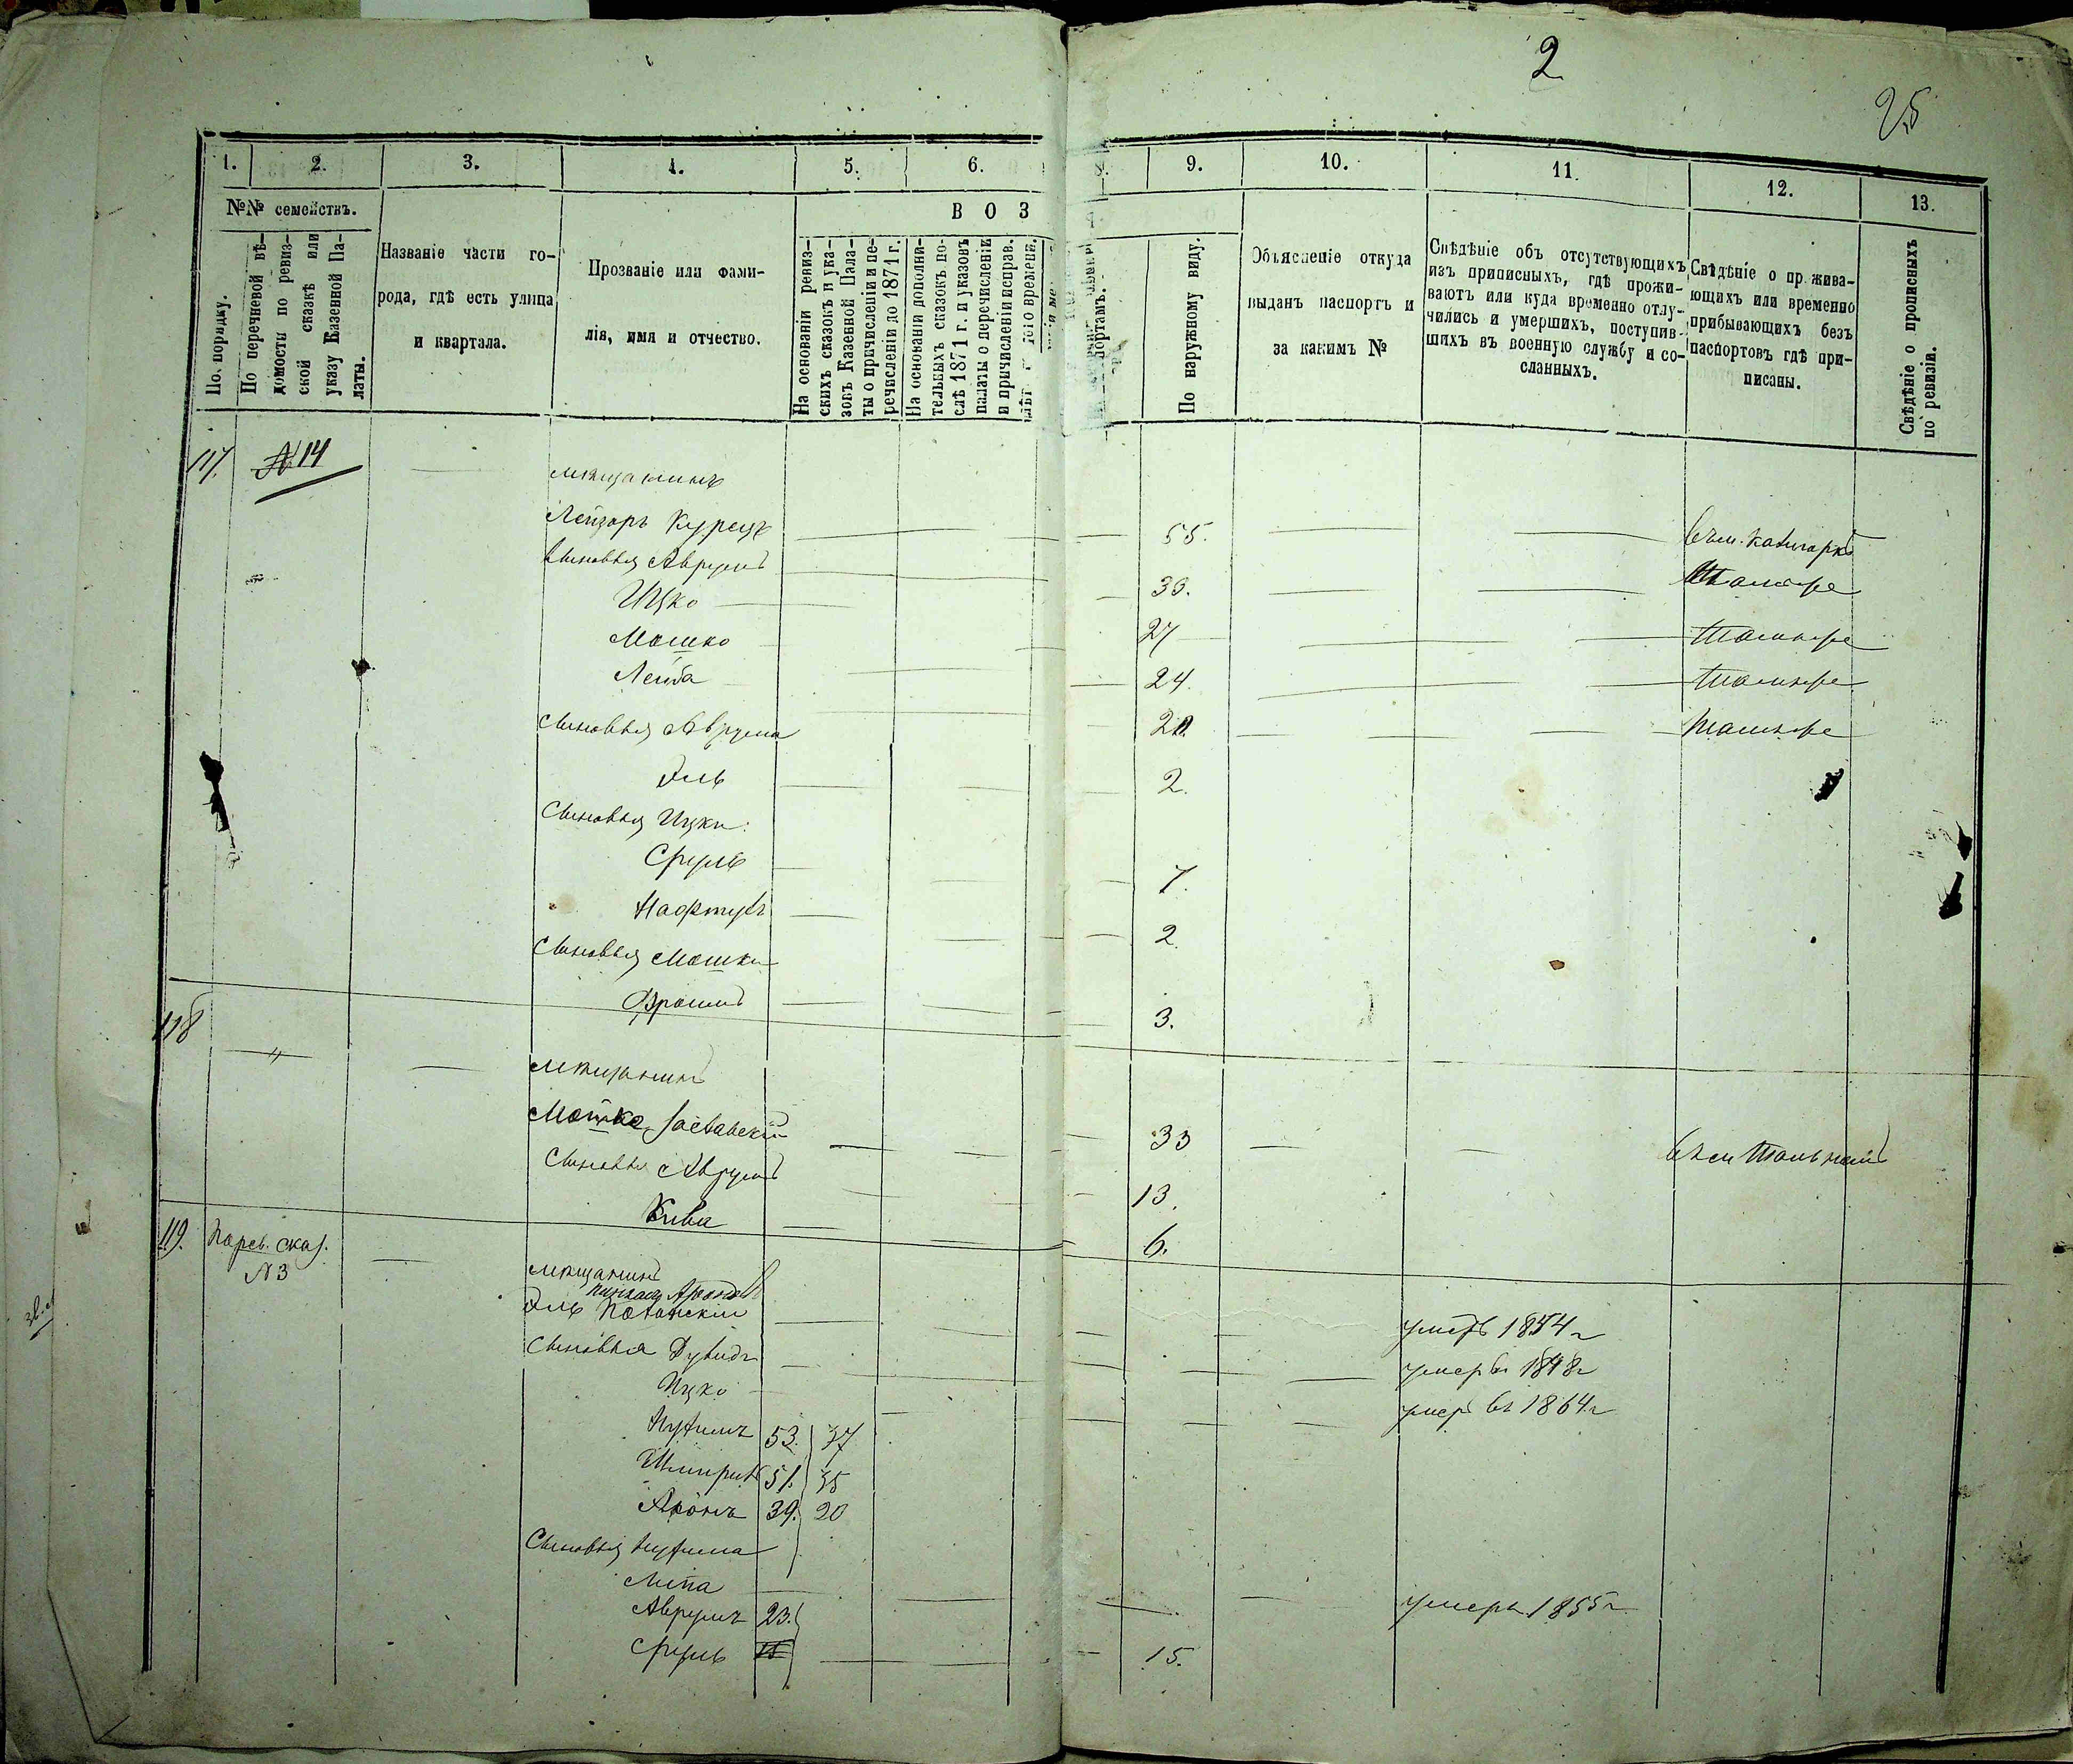 2
25
1. 2. 3. 4. 5. 6.
9. 10. 11. 12. 13.
№№ семействъ.
По порядку.
По перечневой вѣ-
домости по ревиз-
ской сказкѣ или
указу Казенной Па-
латы.
Названіе части го-
рода, гдѣ есть улица
и квартала.
Прозваніе или фами-
лія, имя и отчество.
В О З
На основаніи ревиз-
скихъ сказокъ и ука-
зовъ Казенной Пала-
ты о причисленіи и пе-
речисленіи до 1871 г.
На основаніи дополни-
тельныхъ сказокъ по-
слѣ 1871 г. и указовъ
палаты о перечисленіи
и причисленіи исправ.
того времени.
портамъ.
По наружному виду.
Объясненіе откуда
выданъ паспортъ и
за какимъ №
Свѣдѣніе объ отсутствующихъ
изъ приписныхъ, гдѣ прожи-
ваютъ или куда временно отлу-
чились и умершихъ, поступив-
шихъ въ военную службу и со-
сланныхъ.
Свѣдѣніе о прожива-
ющихъ или временно
прибывающихъ безъ
паспортовъ гдѣ при-
писаны.
Свѣдѣніе о прописныхъ
по ревизіи.
117. №14 мѣщанинъ
Лейзоръ Курецъ 55. въ м.
Сыновья Аврумъ 33.
Ицко 27
Мошко 24.
Лейба 20.
Сыновья Аврума
Эль 2.
Сыновья Ицки:
Сруль 7.
Нафтулъ 2.
Сыновья Мошки
Фроимъ 3.
118 " мѣщанинъ
Мошко Заславскій 33 въ м. Тальномъ
Сыновья Аврумъ 13.
Кива 6.
119. № 3
мѣщанинъ
Эль умеръ 1854 г
Сыновья Дувидъ умеръ 1848 г
Ицко умеръ въ 1864 г
Нухимъ 53. 37
51. 35
Аронъ 39. 20
Сыновья Нухима
Липа умеръ 1855 г
Аврумъ 23.
Сруль 15.